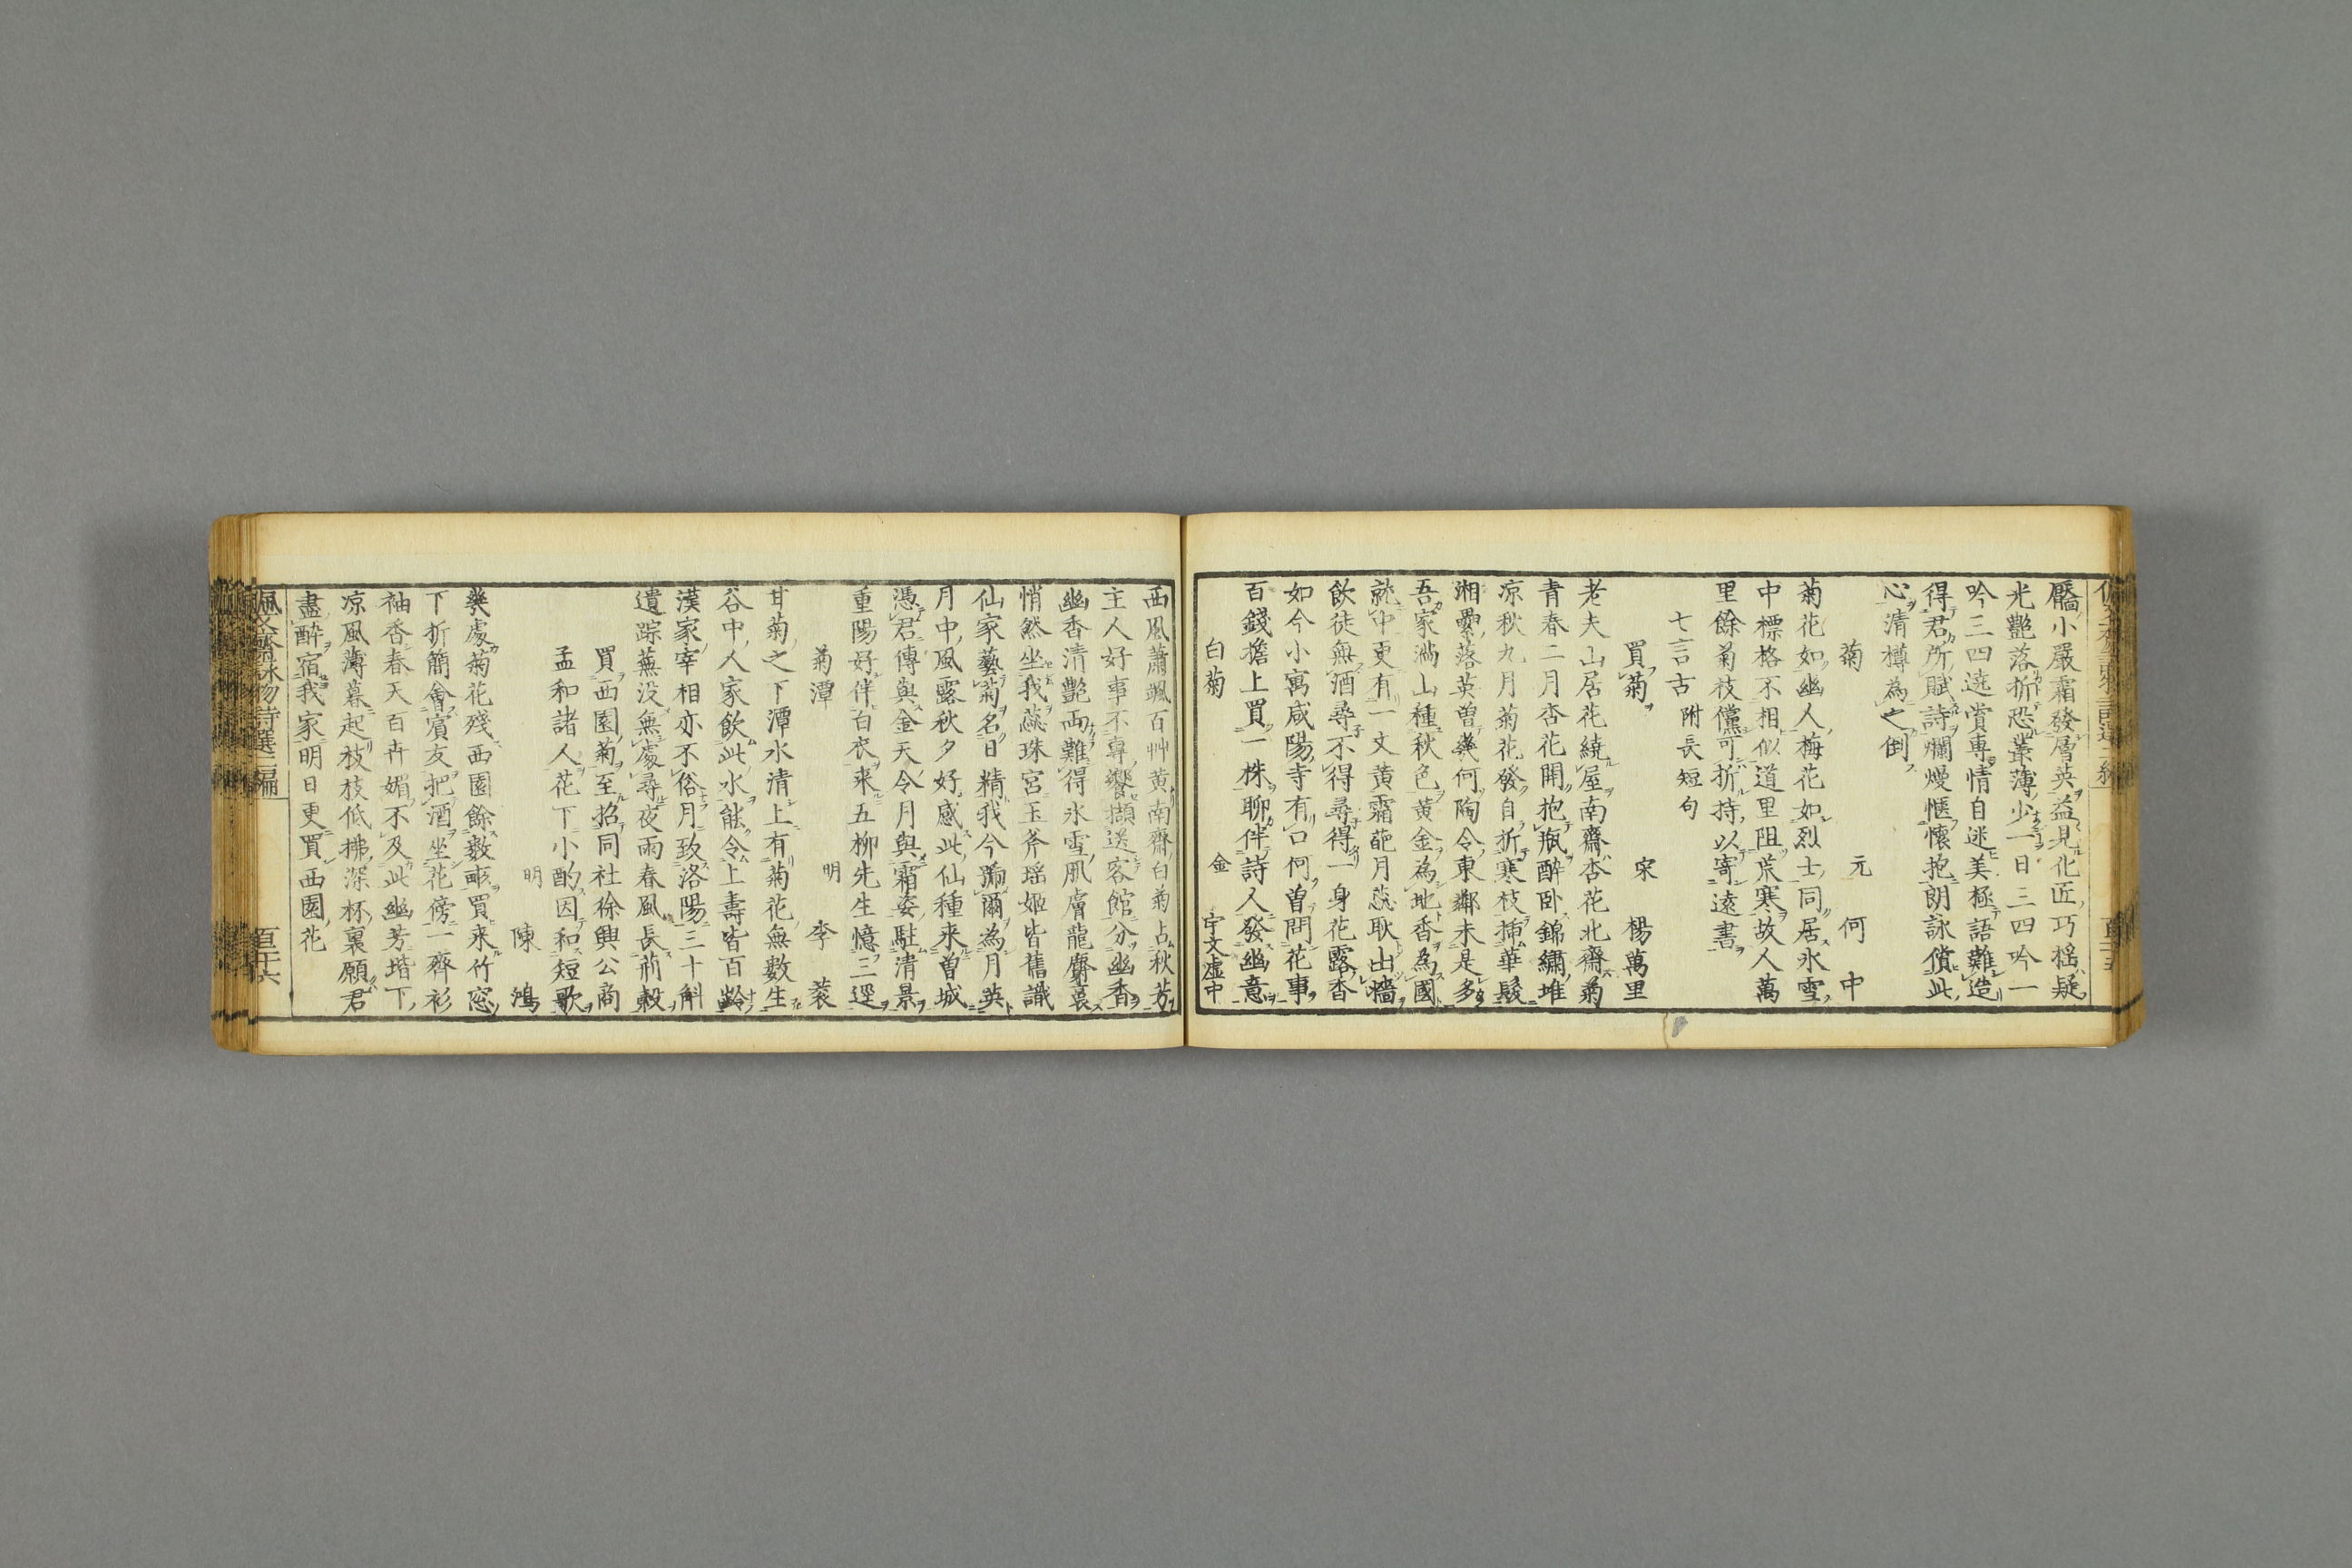 靨小嚴霜發層英益見化匠巧揺疑
光艷落折恐叢薄少一日三四吟一
吟三四遶賞專情自迷美極語難造
得君所賦詩爛熳愜懷抱朗詠償此
心清樽為之倒
菊 元 何中
菊花如幽人梅花如烈士同居氷雪
中標格不相似道里阻荒寒故人萬
里餘菊枝儻可折持以寄遠書
七言古 附長短句
買菊 宋 楊萬里
老夫山居花繞屋南齋杏花北齋菊
青春二月杏花開抱瓶醉卧錦繡堆
凉秋九月菊花發自折寒枝揷華髮
湘纍落英曽幾何陶令東鄰未是多
吾家滿山種秋色黄金為地香為國
就中更有一丈黄霜葩月蕊耿出墻
飲徒無酒尋不得尋得一身花露香
如今小寓咸陽寺有口何曽問花事
百錢擔上買一株聊伴詩人發幽意
白菊 金 宇文虚中
西風蕭颯百艸黄南齋白菊占秋芳
主人好事不專饗擷送客館分幽香
幽香清艷兩難得氷雪肌膚龍麝裛
悄然坐我蕊珠宮玉斧瑶姬皆舊識
仙家藝菊名日精我今號爾為月英
月中風露秋夕好感此仙種来曽城
憑君傳與金天令月與霜姿駐清景
重陽好伴白衣来五柳先生憶三逕
菊潭 明 李蓘
甘菊之下潭水清上有菊花無數生
谷中人家飲此水能令上壽皆百齡
漢家宰相亦不俗月致洛陽三十斛
遺踪蕪没無處尋夜雨春風長荊榖
買西園菊至招同社徐興公商
孟和諸人花下小酌因和短歌
明 陳鴻
幾處菊花殘西園餘數畝買来竹窓
下折簡會賓友把酒坐花傍一齊衫
袖香春天百卉媚不及此幽芳堦下
凉風薄暮起枝枝低拂深杯裏願君
盡醉宿我家明日更買西園花
佩文齋咏物詩選二編 百三十六